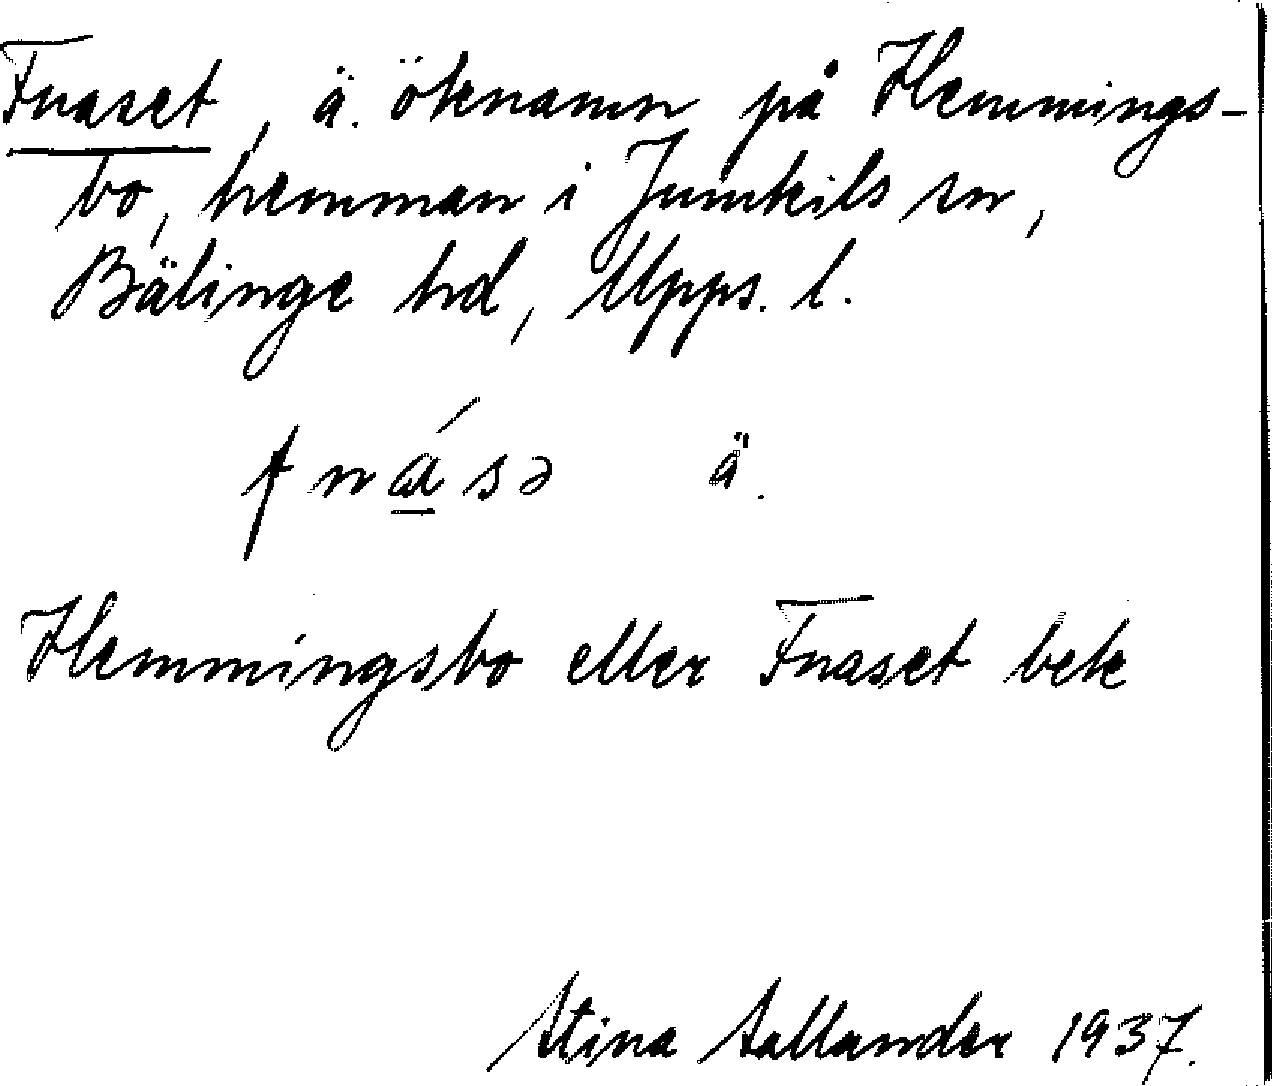 Fnaset, ä. öknamn på Hemmings-
bo, hemman i Jumkils sn,
Bälinge hd, Upps. l.
fnásə ä.
Hemmingsbo eller Fnaset bek
Stina Sallander 1937.